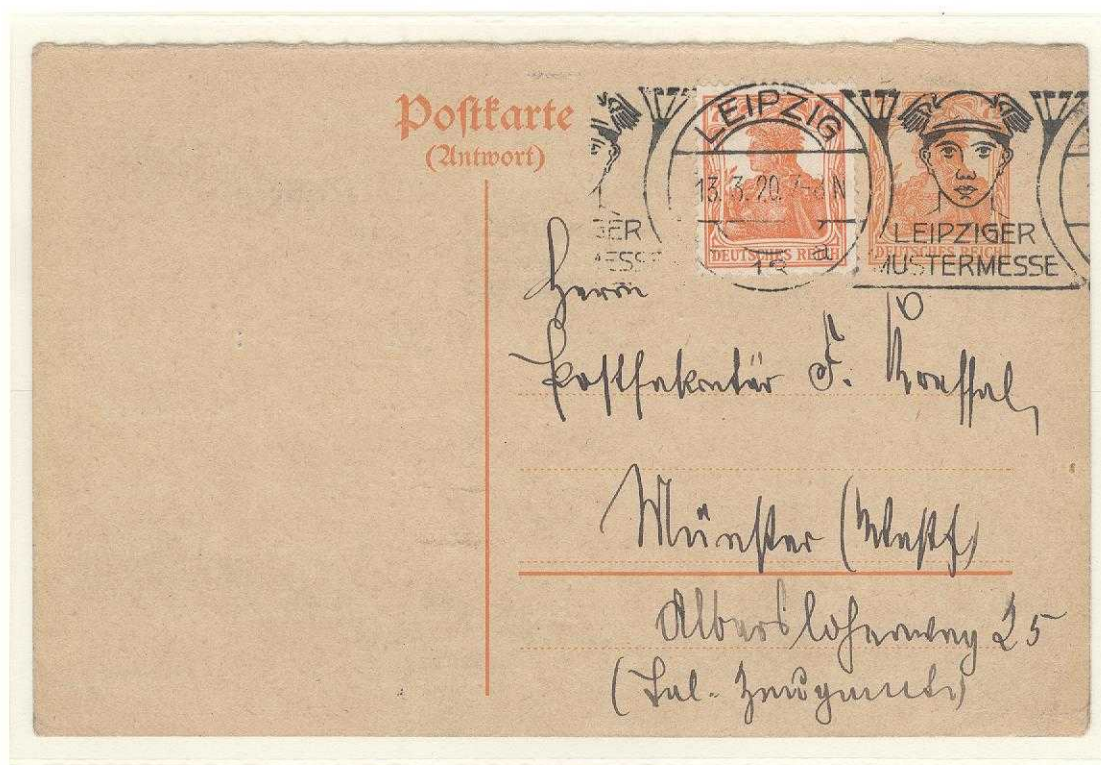 Postkarte
(Antwort)
LEIPZIG
13.3.20. N
a
DEUTSCHES REICH
DEUTSCHES REICH
LEIPZIGER
MUSTERMESSE
GER
MESSE
Herrn
Postsekretär F.
Münster (Westf)
Albersloherweg 25
(Tel.